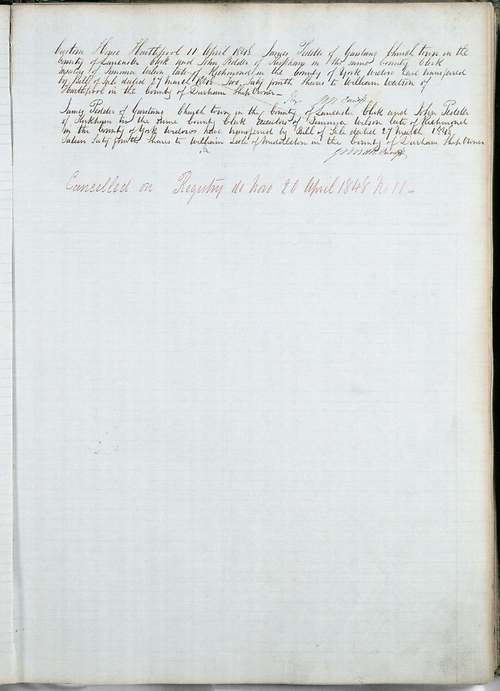 Custom House Hartlepool 11 April 1848 James Pedder of Garstang Church town in the
County of Lancaster Clerk and John Pedder of in the same County Clerk
Wilson late of Richmond in the County of York have transferred
by Bill of Sale dated 27 March 1848 Two Sixty fourth Shares to William Watson of
Hartlepool in the County of Durham Ship Owner
James Pedder of Garstang Church town in the County of Lancaster Clerk and John Pedder
of in the same County Clerk Executors of Wilson late of Richmond
in the County of York have transferred by Bill of Sale dated 27 March 1848
Sixty fourth Shares to William of Middleton in the County of Durham Ship Owner
Cancelled on Registry de Novo 20 April 1848 No 11